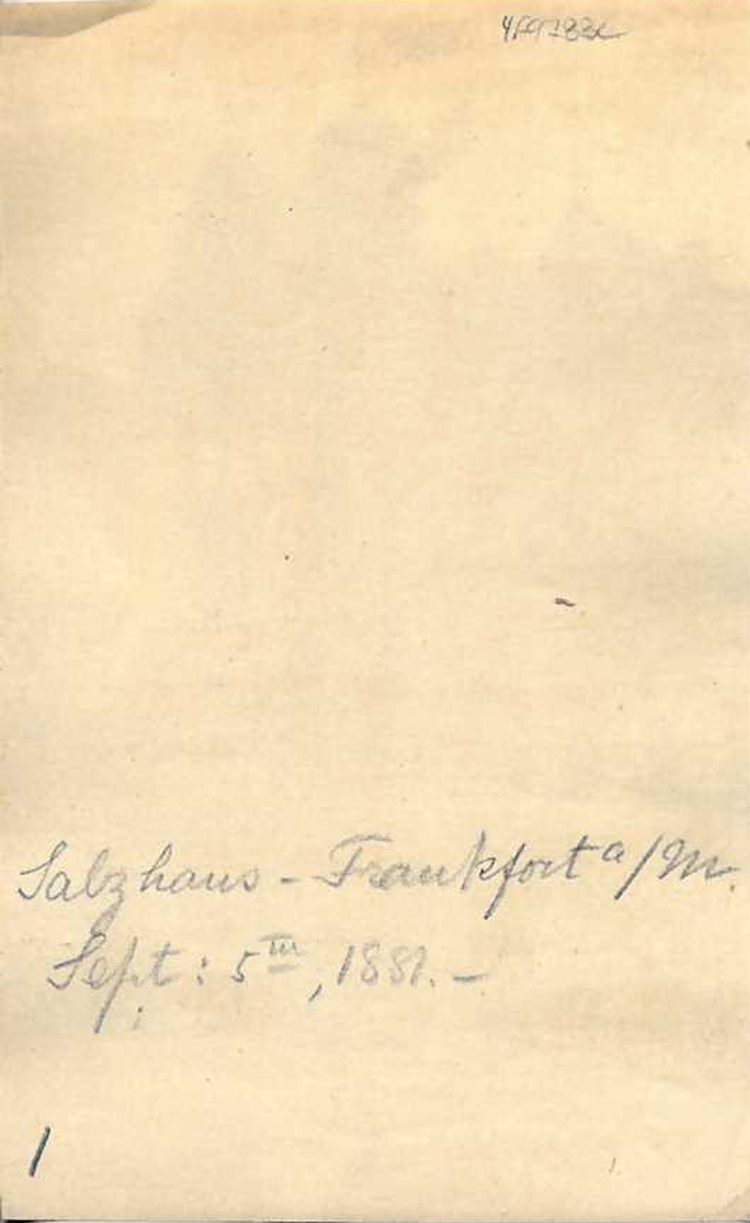 Salzhaus - Frankfort a/M.
Sept: 5th, 1881. -
1